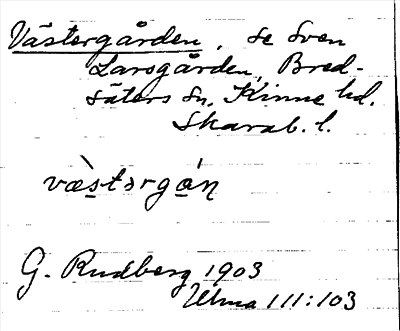 Västergården, se Sven
Larsgården, Bred-
säters sn, Kinne hd.
Skarab. l.
væ̀stərgɑ́ɳ
G. Rudberg 1903
Ulma 111:103